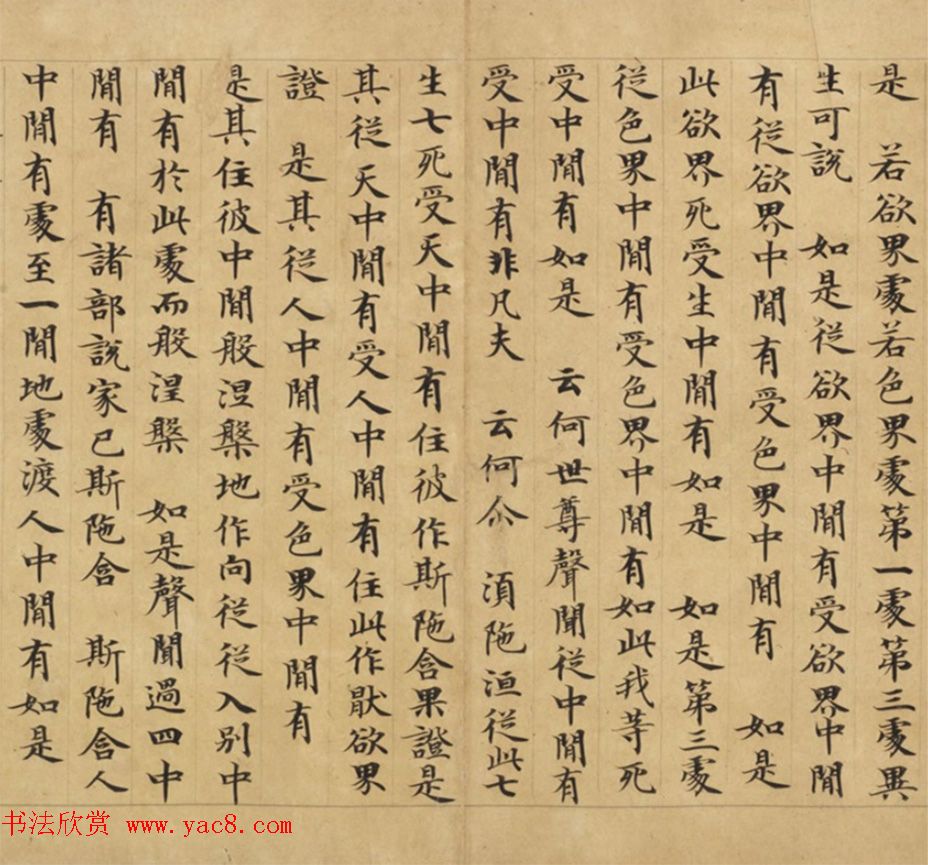 是　若欲界處若色界處第一處第三處異
生可說　如是從欲界中間有受欲界中間
有從欲界中間有受色界中間有　如是
此欲界死受生中間有如是　如是第三處
從色界中間有受色界中間有如此我等死
受中間有如是　云何世尊聲聞從中間有
受中間有非凡夫　云何佘　須陁洹從此七
生七死受天中間有住彼作斯陁含果證是
其從天中間有受人中間有住此作猒欲界
證　是其從人中間有受色界中間有
是其住彼中間般涅槃地作向從從入别中
間有於此處而般涅槃　如是聲聞過四中
間有　有諸部說家已斯陁含　斯陁含人
中間有處至一間地處渡人中間有如是
书法欣赏 www.yac8.com